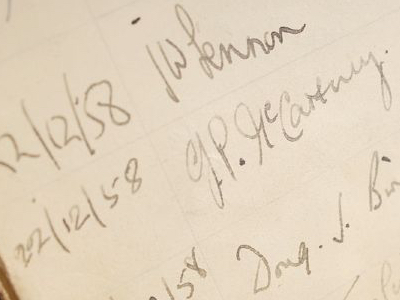 22/12/58 JW Lennon
22/12/58 J.P. McCartney.
/58 Doug. J.